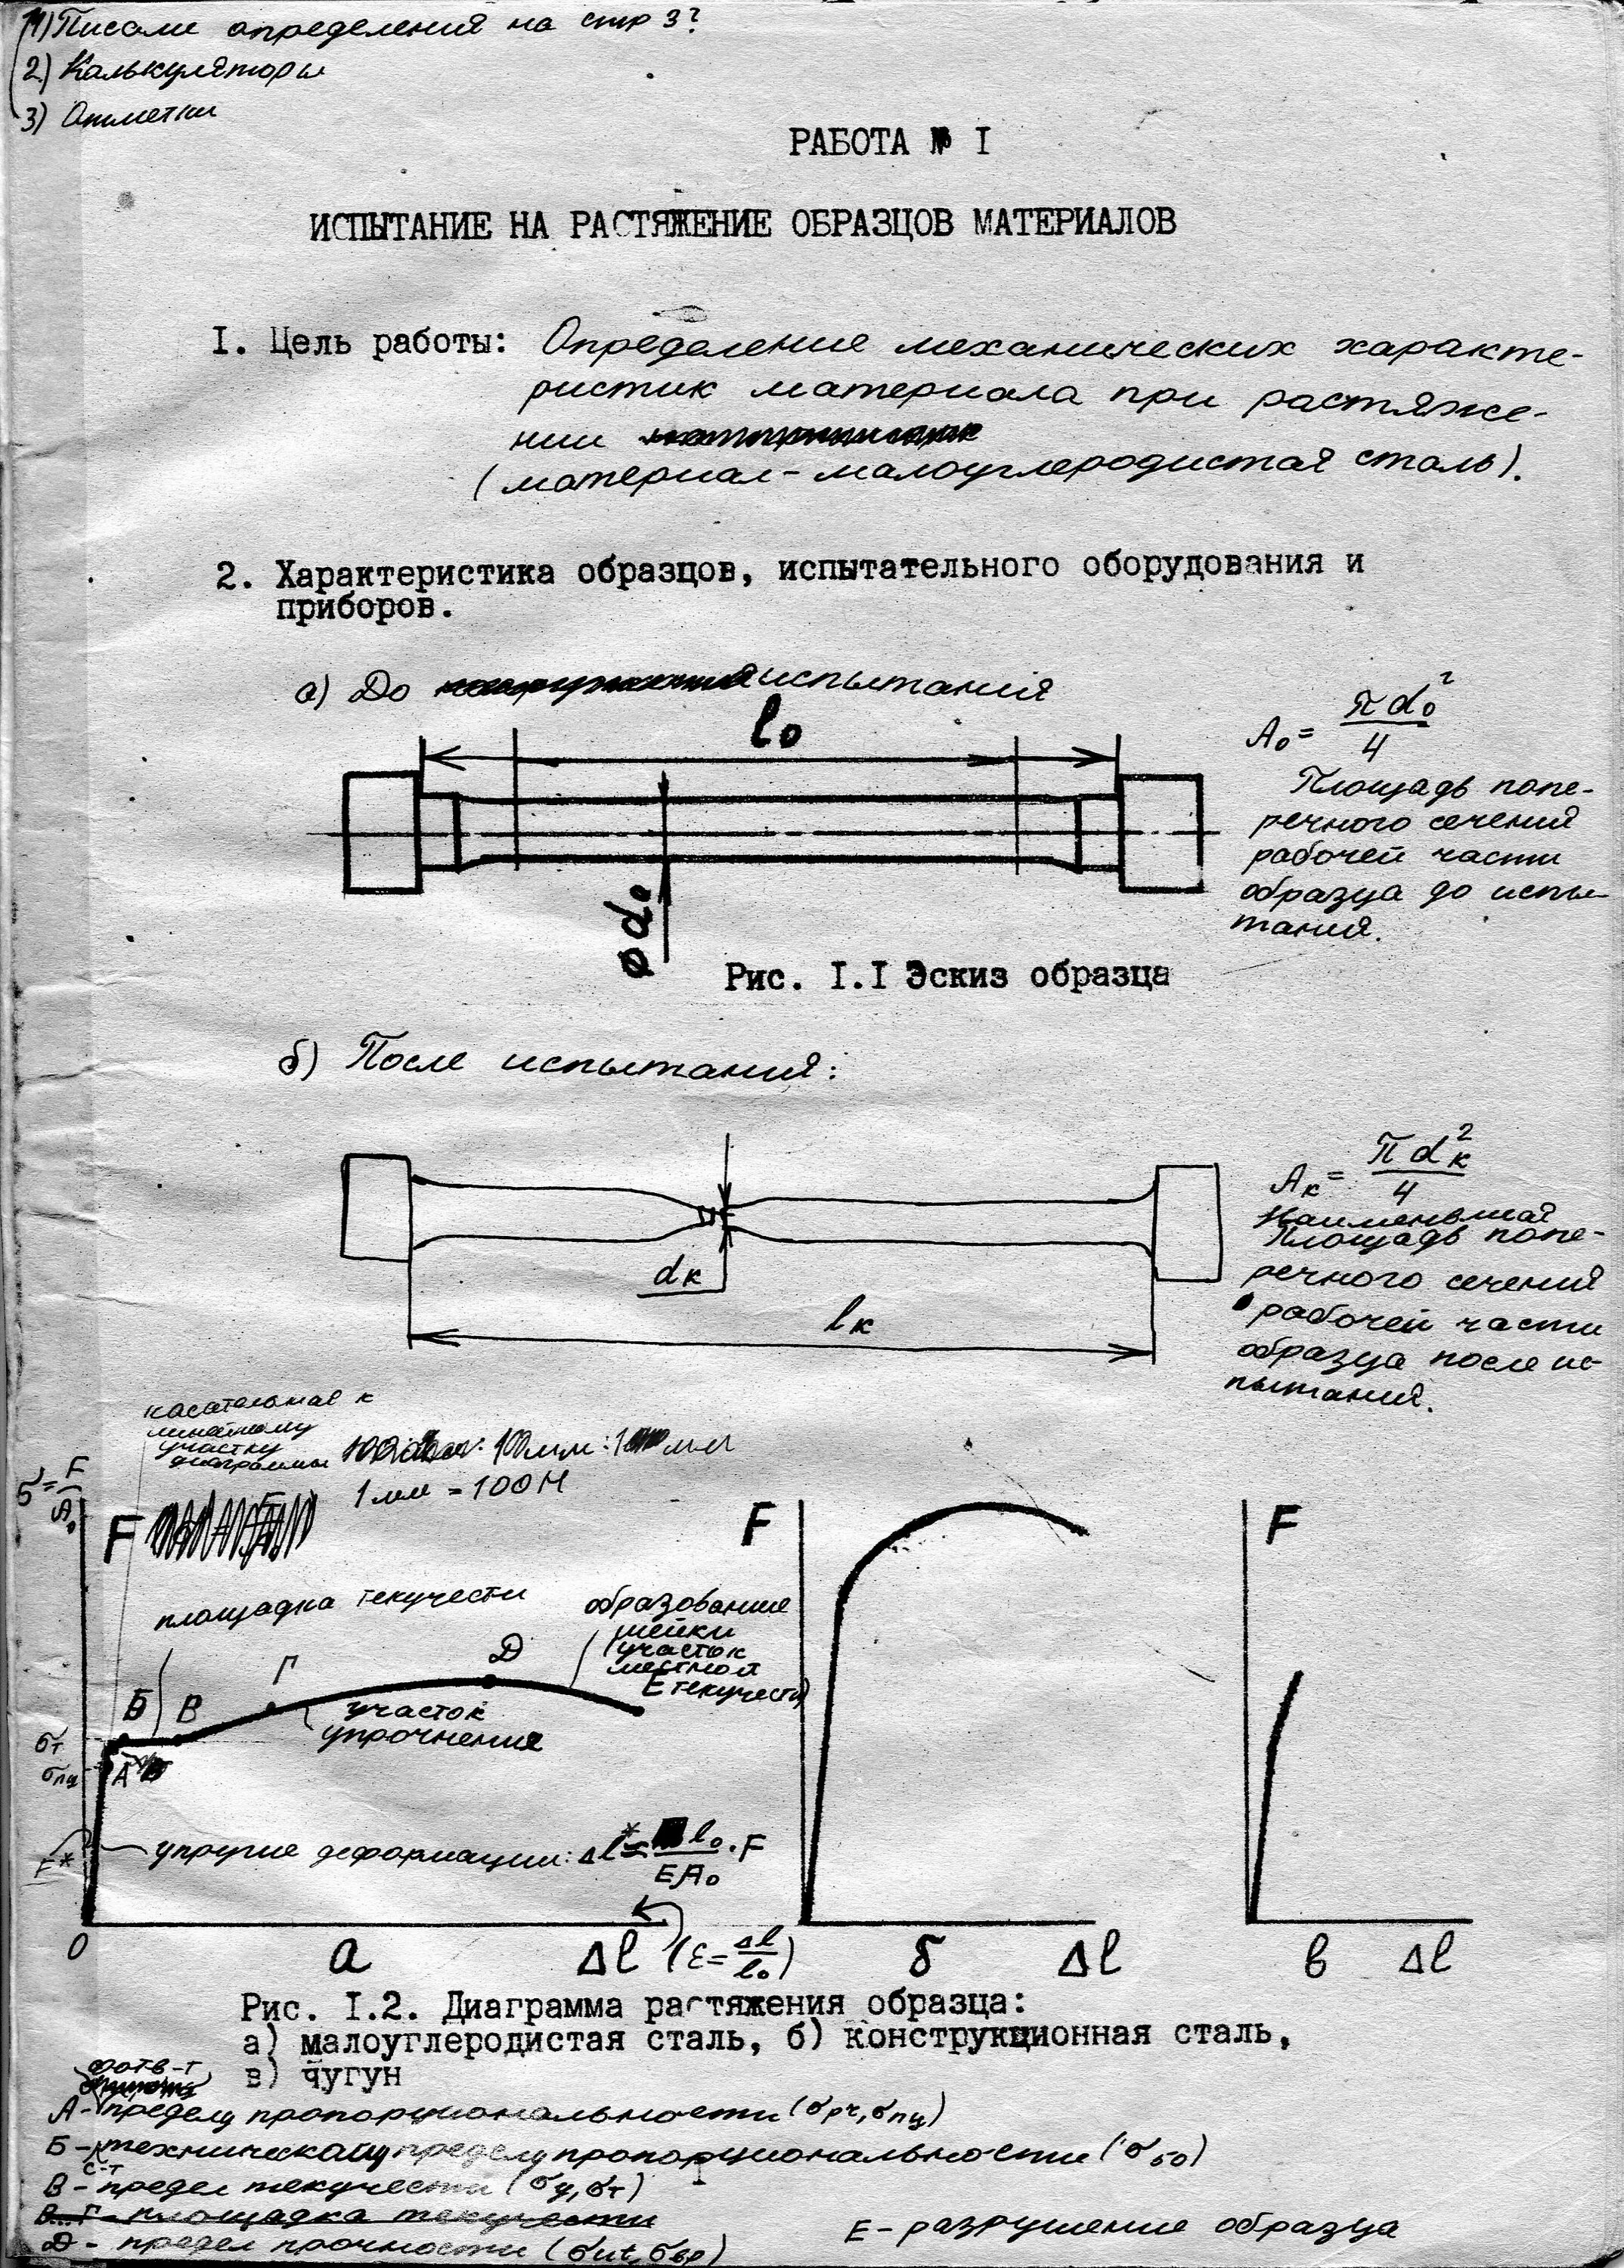 1) Писали определения на стр 3?
2) Калькуляторы
3) Отметки
РАБОТА № I
ИСПЫТАНИЕ НА РАСТЯЖЕНИЕ ОБРАЗЦОВ МАТЕРИАЛОВ
I. Цель работы: Определение механических характе-
ристик материала при растяже-
нии
(материал - малоуглеродистая сталь).
2. Характеристика образцов, испытательного оборудования и
приборов.
а) До испытания
l₀
A₀ = πd₀²/4
Площадь попе-
речного сечения
рабочей части
образца до испы-
тания.
⌀ d₀
Рис. I.I Эскиз образца
б) После испытания:
Aк = πdк²/4
Наименьшая
Площадь попе-
речного сечения
рабочей части
образца после ис-
пытания.
dк
lк
касательная к
линейному
участку
диаграммы
1 мм = 100 Н
σ = F/A₀
F
F
F
площадка текучести
образование
шейки
(участок
местной
текучести)
Е
Д
Г
Б
В
участок
упрочнения
σт
σпц
А
F*
упругие деформации: Δl* = l₀/EA₀ · F
0
а
Δl
(ε = Δl/l₀)
б
Δl
в
Δl
Рис. I.2. Диаграмма растяжения образца:
а) малоуглеродистая сталь, б) конструкционная сталь,
в) чугун
соотв-т
А - пределу пропорциональности (σpr, σпц)
Б - техническому пределу пропорциональности (σ50)
с-т
В - предел текучести (σy, σт)
В...Г - площадка текучести
Д - предел прочности (σut, σвр)
Е - разрушение образца